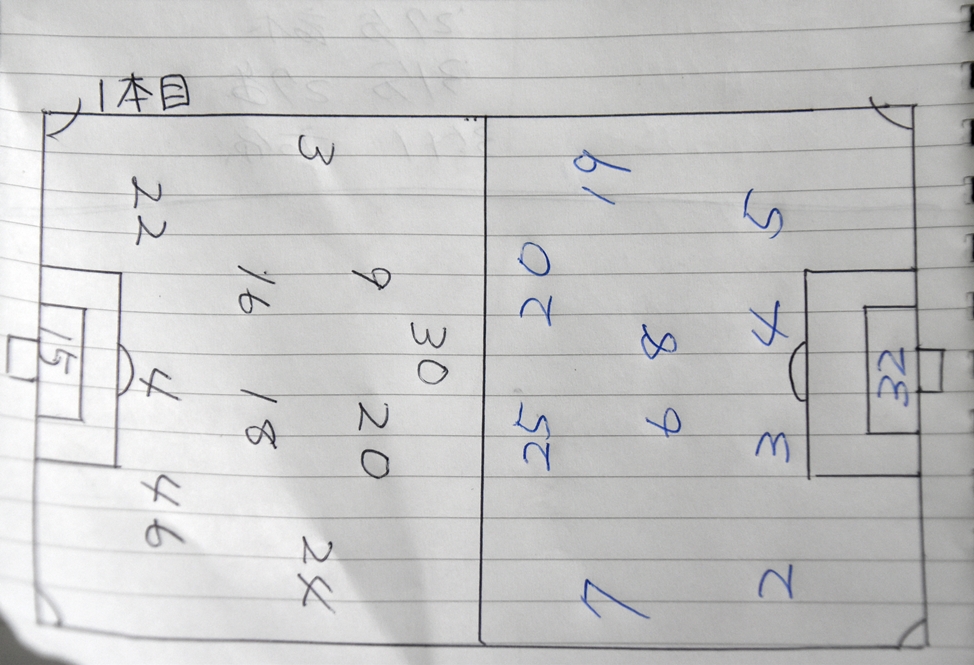 1本目
15
22
4
46
16
18
3
24
9
20
30
20
25
19
7
8
6
5
4
3
2
32